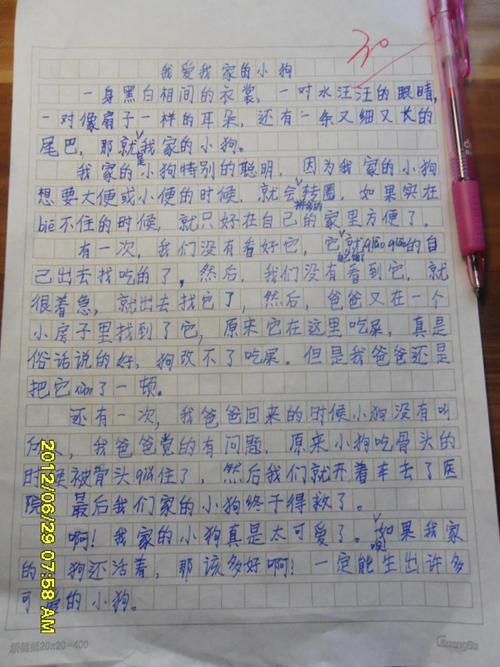 30
我爱我家的小狗
一身黑白相间的衣裳，一对水汪汪的眼睛，
一对像扇子一样的耳朵，还有一条又细又长的
尾巴，那就是我家的小狗。
我家的小狗特别的聪明，因为我家的小狗
想要大便或小便的时候，就会拼命的转圈，如果实在
biē不住的时候，就只好在自己的家里方便了。
有一次，我们没有看好它，它就的自
己出去找吃的了，然后，我们没有看到它，就
很着急，就出去找它了，然后，爸爸又在一个
小房子里找到了它，原来它在这里吃屎，真是
俗话说的好，狗改不了吃屎。但是我爸爸还是
把它了一顿。
还有一次，我爸爸回来的时候小狗没有叫
我爸爸觉的有问题，原来小狗吃骨头的
时候被骨头住了，然后我们就开着车去了医
院，最后我们家的小狗终于得救了。
啊！我家的小狗真是太可爱了。如果我家
的小狗还活着，那该多好啊！一定能生出许多
可爱的小狗。
2012/06/29 07:58 AM
20x20=400
Guangbo